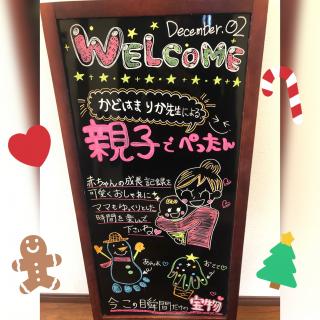 December.02
WELCOME
かどはまりか先生による
親子でぺったん
赤ちゃんの成長記録を
可愛くおしゃれに
ママもゆっくりとした
時間を楽しんで
下さいね
あんよ
おてて
今この瞬間だけの宝物